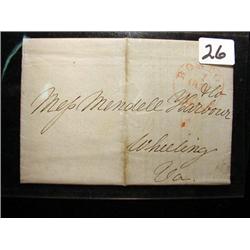 26
Mess Mendell Harbour & Co
Wheeling
Va.